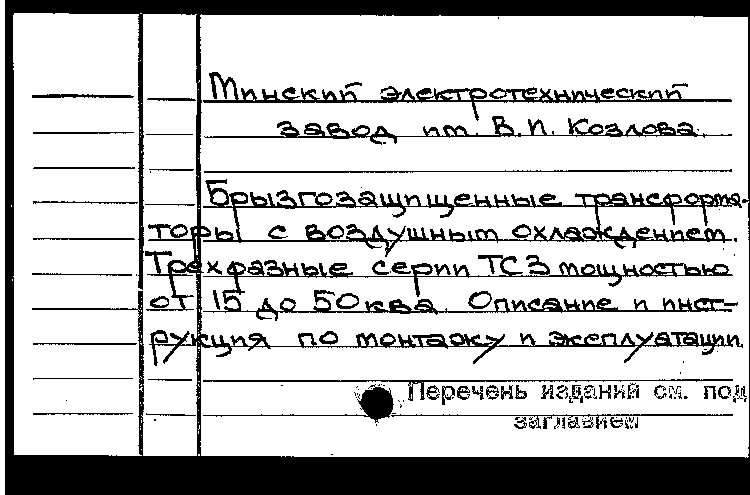 Минский электротехнический
завод им. В.И. Козлова.
Брызгозащищенные трансформа-
торы с воздушным охлаждением.
Трехфазные серии ТСЗ мощностью
от 15 до 50 ква. Описание и инст-
рукция по монтажу и эксплуатации.
Перечень изданий см. под
заглавием